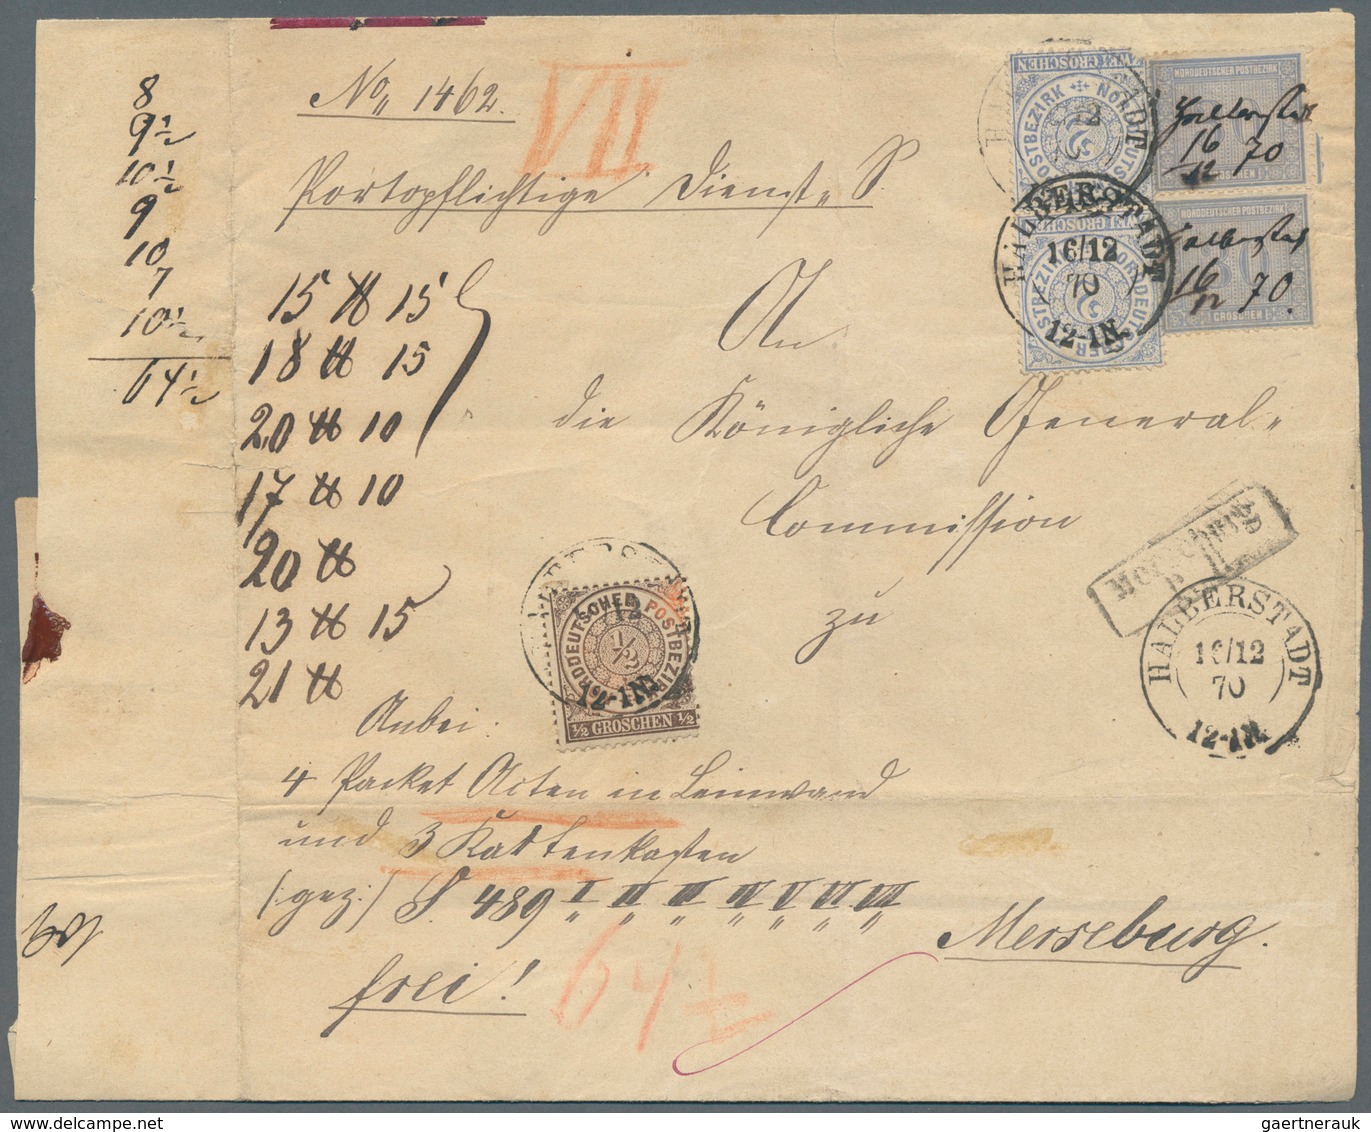 8
9½
10½
9
10
7
10½
64½
No 1462.
VII
Portopflichtige Dienst S.
15 ℔ 15
18 ℔ 15
20 ℔ 10
17 ℔ 10
20 ℔
13 ℔ 15
21 ℔
An
die Königliche General-
Commission
zu
Merseburg.
Anbei:
4 Packet Acten in Leinwand
und 3 Kartenkasten
(:gez:) S. 489 I II III IV V VI VII
frei!
64½
NORDDEUTSCHER POSTBEZIRK
Halberstadt
16/12 70
NORDDEUTSCHER POSTBEZIRK
Halberstadt
16/12 70.
GROSCHEN
GROSCHEN
NORDDEUTSCHER POSTBEZIRK
2
HALBERSTADT
16/12
70
12-1N.
NORDDEUTSCHER POSTBEZIRK
½
½ GROSCHEN ½
12-1N.
HALBERSTADT
16/12
70
12-1N.
gaertnerauk